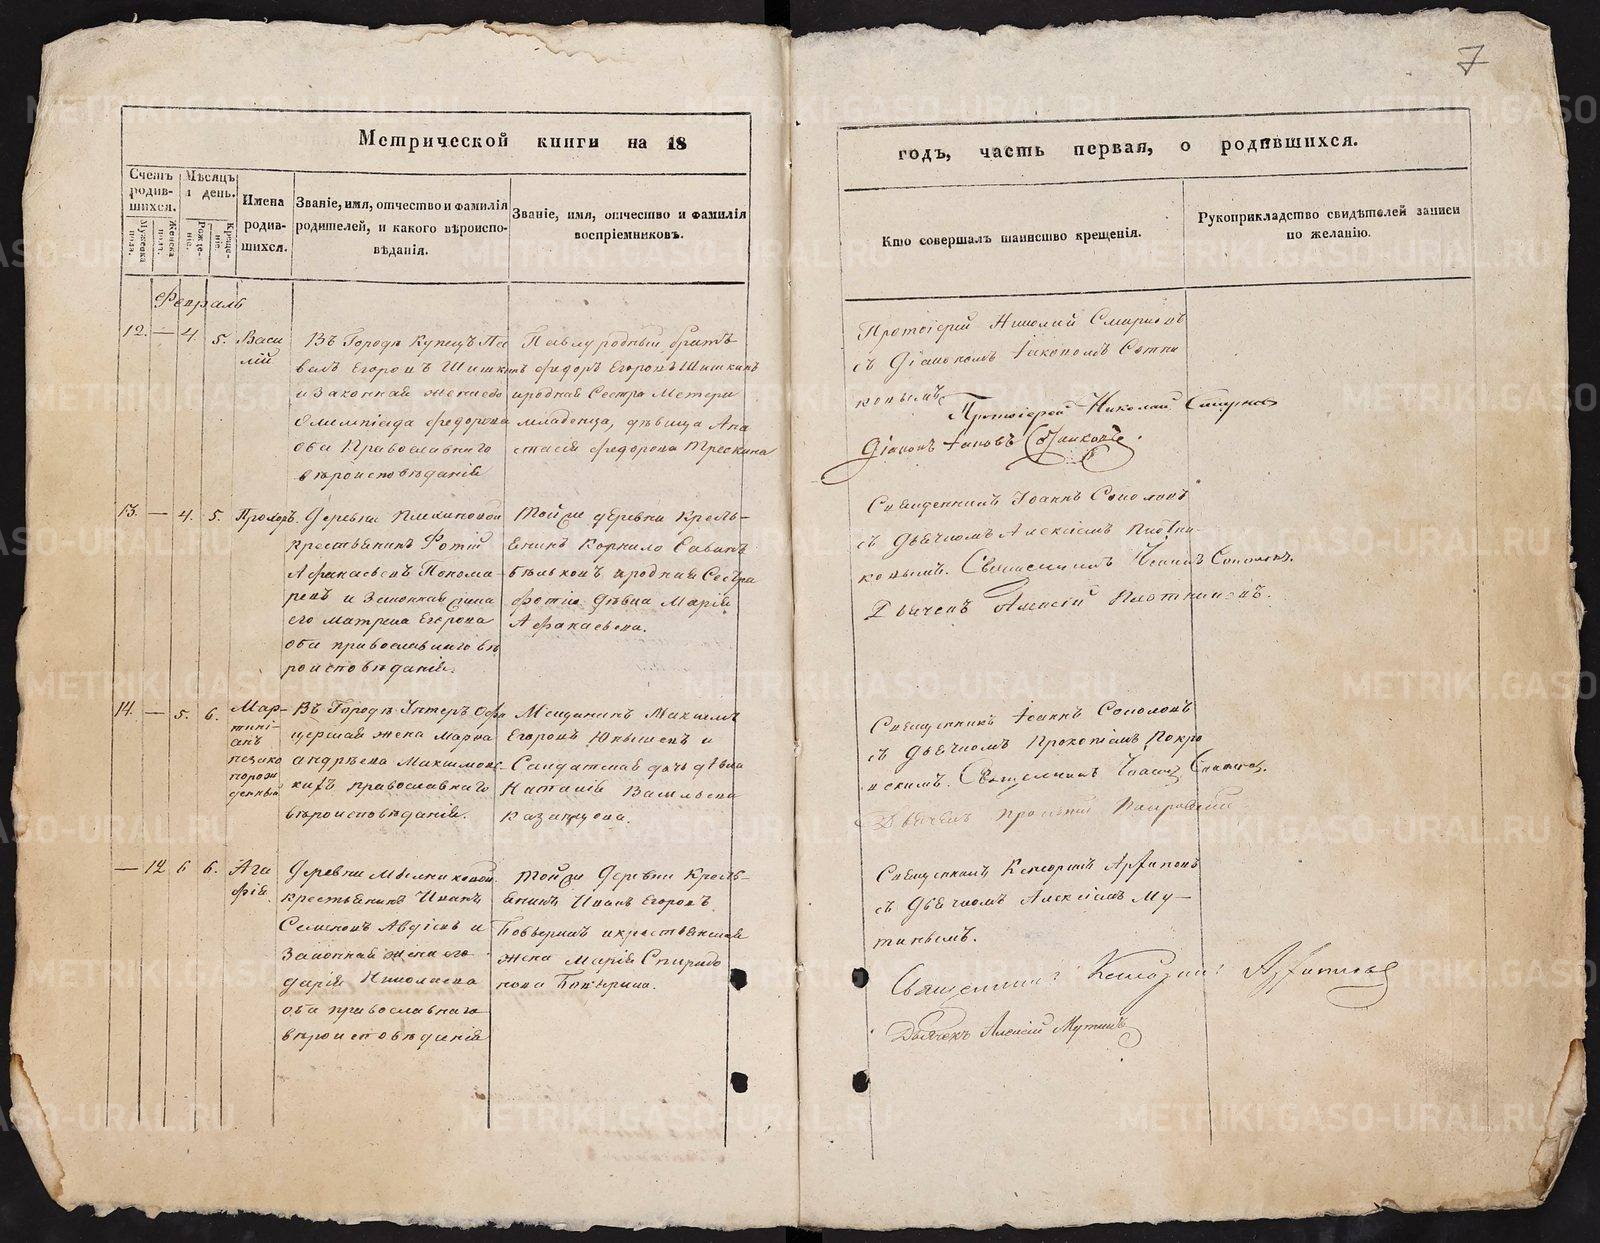 7
Метрической книги на 18
годъ, часть первая, о родившихся.
Счетъ родив- шихся.
Мужеска пола.
Женска пола.
Мѣсяцъ и день.
Рожде- ніе.
Креще- ніе.
Имена родив- шихся.
Званіе, имя, отчество и фамилія
родителей, и какого вѣроиспо-
вѣданія.
Званіе, имя, отчество и фамилія
воспріемниковъ.
Кто совершалъ таинство крещенія.
Рукоприкладство свидѣтелей записи
по желанію.
Февраль
12. — 4. 5. Васи
лій
Въ Городѣ Купецъ Па
велъ Егоровъ Шишкинъ
и Законная жена его
Олимпіада Федорова
оба Православнаго
вѣроисповѣданія
Павлу родный братъ
Федоръ Егоровъ Шишкинъ
и родная Сестра Матери
младенца, дѣвица Ана
стасія Федорова Трескина
Протоіерей Николай Смирновъ
съ Діакономъ Іаковомъ Сотни
ковымъ
Протоіерей Николай Смирновъ
Діаконъ Іаковъ Сотниковъ.
13. — 4. 5. Прохоръ.
Деревни
крестьянинъ Фотій
Афанасьевъ Понома
ревъ и Законная жена
его Матрена Егорова
оба православнаго вѣ
роисповѣданія.
Тойже деревни Кресть-
янинъ Корнило Савинъ
Бѣльковъ и родная Сестра
Фотія дѣвка Марія
Афанасьева.
Священникъ Іоаннъ Соколовъ
съ Дьячкомъ Алексіемъ Плотни-
ковымъ. Священникъ Іоаннъ Соколовъ.
Дьячекъ Алексій Плотниковъ.
14. — 5. 6. Мар-
тині-
анъ
незако
норож
денный
Въ Городѣ Унтеръ Офи
церская жена Марѳа
Андрѣева Максимовс-
кихъ православнаго
вѣроисповѣданія.
Мещанинъ Максимъ
Егоровъ и
Солдатская дочь дѣвка
Наталія Васильева
Казанцова.
Священникъ Іоаннъ Соколовъ
съ Дьячкомъ Прокопіемъ Покро
вскимъ. Священникъ Іоаннъ Соколовъ.
Дьячекъ Прокопій Покровскій
— 12 6 6. Ага
фія.
Деревни Мыльниковой
крестьянинъ Иванъ
Семеновъ Авдіевъ и
Законная жена его
Дарія Николаева
оба православнаго
вѣроисповѣданія
Тойже Деревни Кресть-
янинъ Иванъ Егоровъ
и крестьянская
жена Марія Спиридо
нова
Священникъ Кенсоринъ Арфиповъ
съ Дьячкомъ Алексіемъ Му-
тинымъ.
Священникъ Кенсоринъ
Дьячекъ Алексій Мутинъ
METRIKI.GASO-URAL.RU